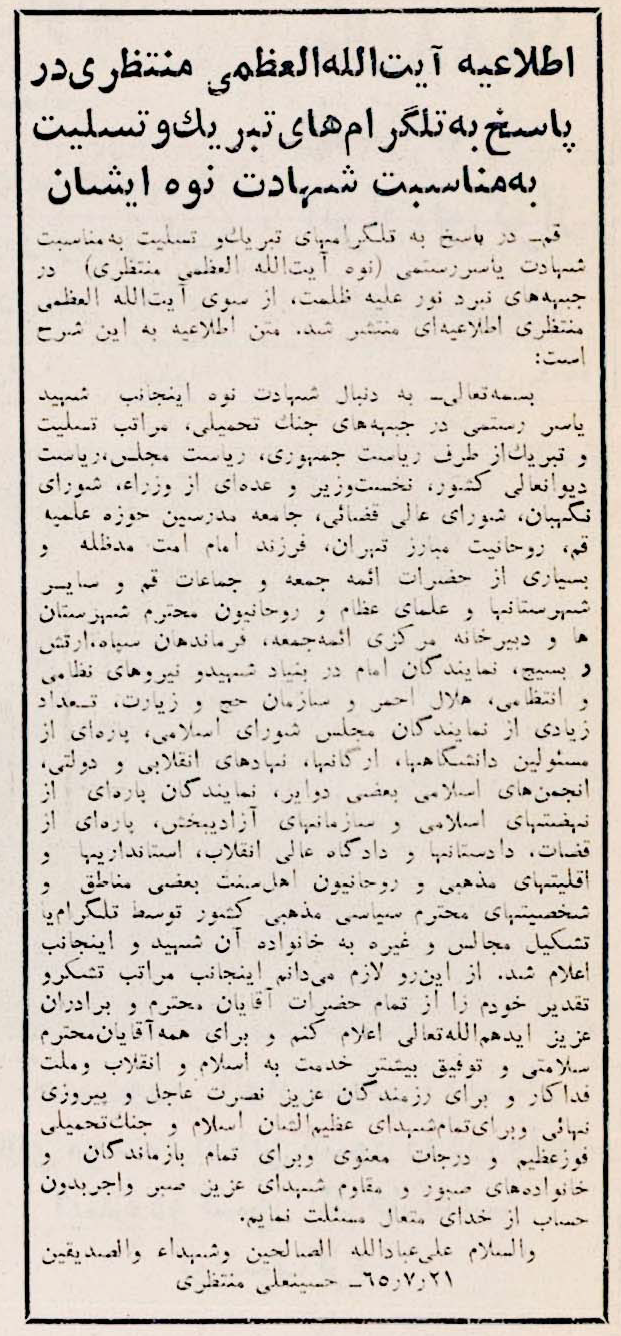 اطلاعیه آیت‌الله‌العظمی منتظری در
پاسخ به تلگرام‌های تبریك و تسلیت
به‌مناسبت شهادت نوه ایشان
قم‌ـ در پاسخ به تلگرامهای تبریك‌و تسلیت به‌مناسبت
شهادت یاسررستمی (نوه آیت‌الله العظمی منتظری) در
جبهه‌های نبرد نور علیه ظلمت، از سوی آیت‌الله العظمی
منتظری اطلاعیه‌ای منتشر شد. متن اطلاعیه به این شرح
است:
بسمه‌تعالی‌ـ به دنبال شهادت نوه اینجانب شهید
یاسر رستمی در جبهه‌های جنك تحمیلی، مراتب تسلیت
و تبریك‌از طرف ریاست جمهوری، ریاست مجلس،ریاست
دیوانعالی کشور، نخست‌وزیر و عده‌ای از وزراء، شورای
نگهبان، شورای عالی قضائی، جامعه مدرسین حوزه علمیه
قم، روحانیت مبارز تهران، فرزند امام امت مدظله و
بسیاری از حضرات ائمه جمعه و جماعات قم و سایر
شهرستانها و علمای عظام و روحانیون محترم شهرستان
ها و دبیرخانه مرکزی ائمه‌جمعه، فرماندهان سپاه،ارتش
و بسیج، نمایندگان امام در بنیاد شهیدو نیروهای نظامی
و انتظامی، هلال احمر و سازمان حج و زیارت، تعداد
زیادی از نمایندگان مجلس شورای اسلامی، پاره‌ای از
مسئولین دانشگاهها، ارگانها، نهادهای انقلابی و دولتی،
انجمن‌های اسلامی بعضی دوایر، نمایندگان پاره‌ای از
نهضتهای اسلامی و سازمانهای آزادیبخش، پاره‌ای از
قضات، دادستانها و دادگاه عالی انقلاب، استانداریها و
اقلیتهای مذهبی و روحانیون اهل‌سنت بعضی مناطق و
شخصیتهای محترم سیاسی مذهبی کشور توسط تلگرام‌یا
تشکیل مجالس و غیره به خانواده آن شهید و اینجانب
اعلام شد. از این‌رو لازم می‌دانم اینجانب مراتب تشکرو
تقدیر خودم را از تمام حضرات آقایان محترم و برادران
عزیز ایدهم‌الله‌تعالی اعلام کنم و برای همه‌آقایان‌محترم
سلامتی و توفیق بیشتر خدمت به اسلام و انقلاب وملت
فداکار و برای رزمندگان عزیز نصرت عاجل و پیروزی
نهائی وبرای‌تمام‌شهدای عظیم‌الشان اسلام و جنك‌تحمیلی
فوزعظیم و درجات معنوی وبرای تمام بازماندگان و
خانواده‌های صبور و مقاوم شهدای عزیز صبر واجربدون
حساب از خدای متعال مسئلت نمایم.
والسلام علی‌عبادالله الصالحین وشهداء والصدیقین
٢١ر٧ر٦٥ـ حسینعلی منتظری